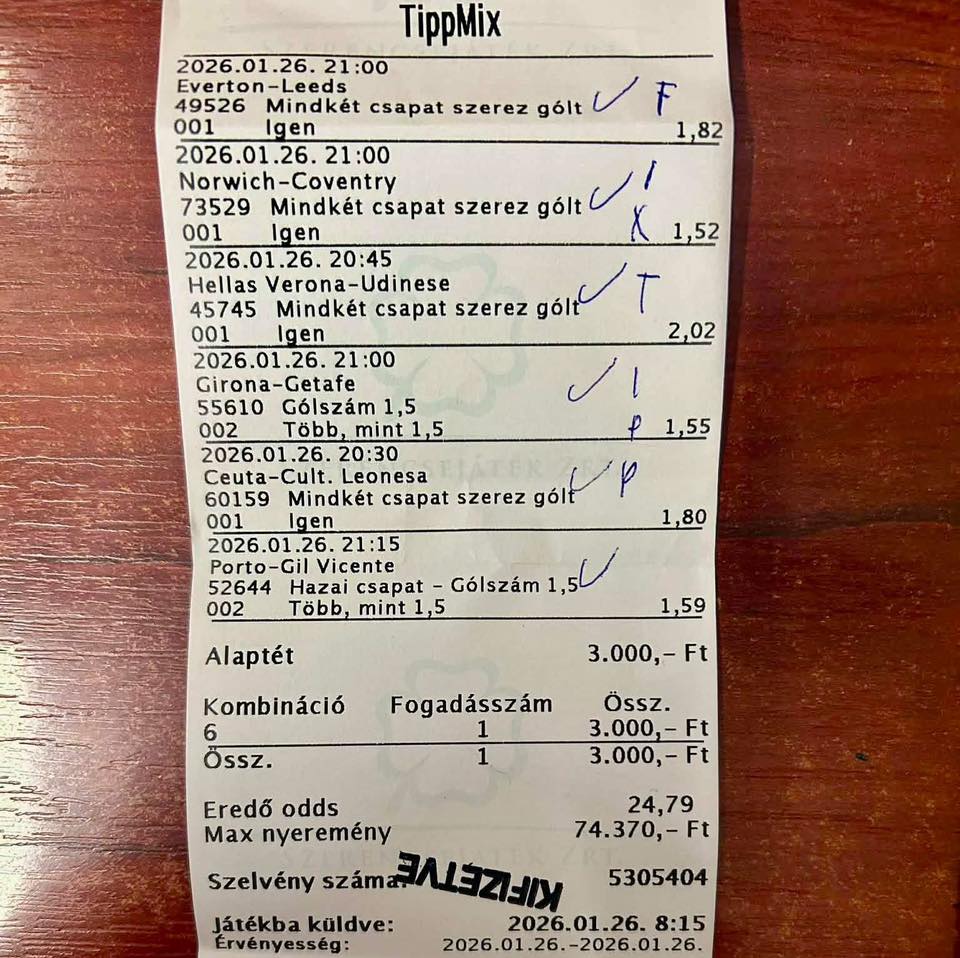 TippMix
2026.01.26. 21:00
Everton-Leeds
49526 Mindkét csapat szerez gólt ✓ F
001 Igen 1,82
2026.01.26. 21:00
Norwich-Coventry
73529 Mindkét csapat szerez gólt ✓ I
001 Igen X 1,52
2026.01.26. 20:45
Hellas Verona-Udinese
45745 Mindkét csapat szerez gólt ✓ T
001 Igen 2,02
2026.01.26. 21:00
Girona-Getafe ✓ I
55610 Gólszám 1,5
002 Több, mint 1,5 P 1,55
2026.01.26. 20:30
Ceuta-Cult. Leonesa
60159 Mindkét csapat szerez gólt ✓ P
001 Igen 1,80
2026.01.26. 21:15
Porto-Gil Vicente
52644 Hazai csapat - Gólszám 1,5 ✓
002 Több, mint 1,5 1,59
Alaptét 3.000,- Ft
Kombináció Fogadásszám Össz.
6 1 3.000,- Ft
Össz. 1 3.000,- Ft
Eredő odds 24,79
Max nyeremény 74.370,- Ft
KIFIZETVE
Szelvény száma: 5305404
Játékba küldve: 2026.01.26. 8:15
Érvényesség: 2026.01.26.-2026.01.26.